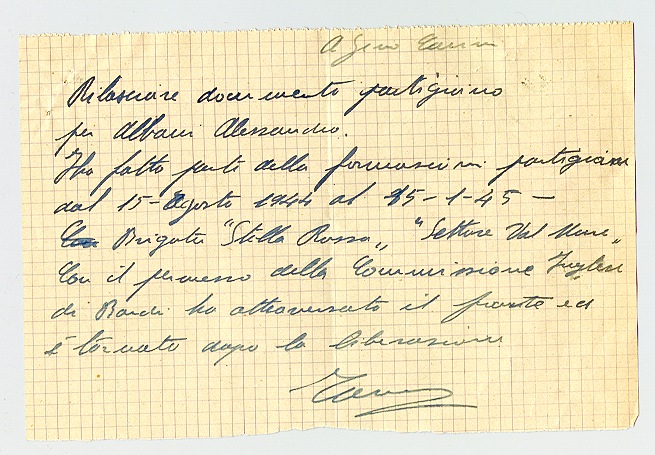 A Gino
Rilasciare documento partigiano
per Albani Alessandro.
Ha fatto parte della formazioni partigiane
dal 15 - Agosto 1944 al 15-1-45 -
Brigata "Stella Rossa„ "Settore Val
Con il permesso della Commissione Inglese
di Bardi ha attraversato il fronte ed
è tornato dopo la liberazione